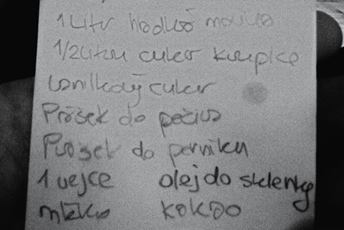 1 Litr hladká mouka
1/2 Litru cukr krupice
vanilkový cukr
Prášek do pečiva
Prášek do perníku
1 vejce olej do sklenky
mléko kakao